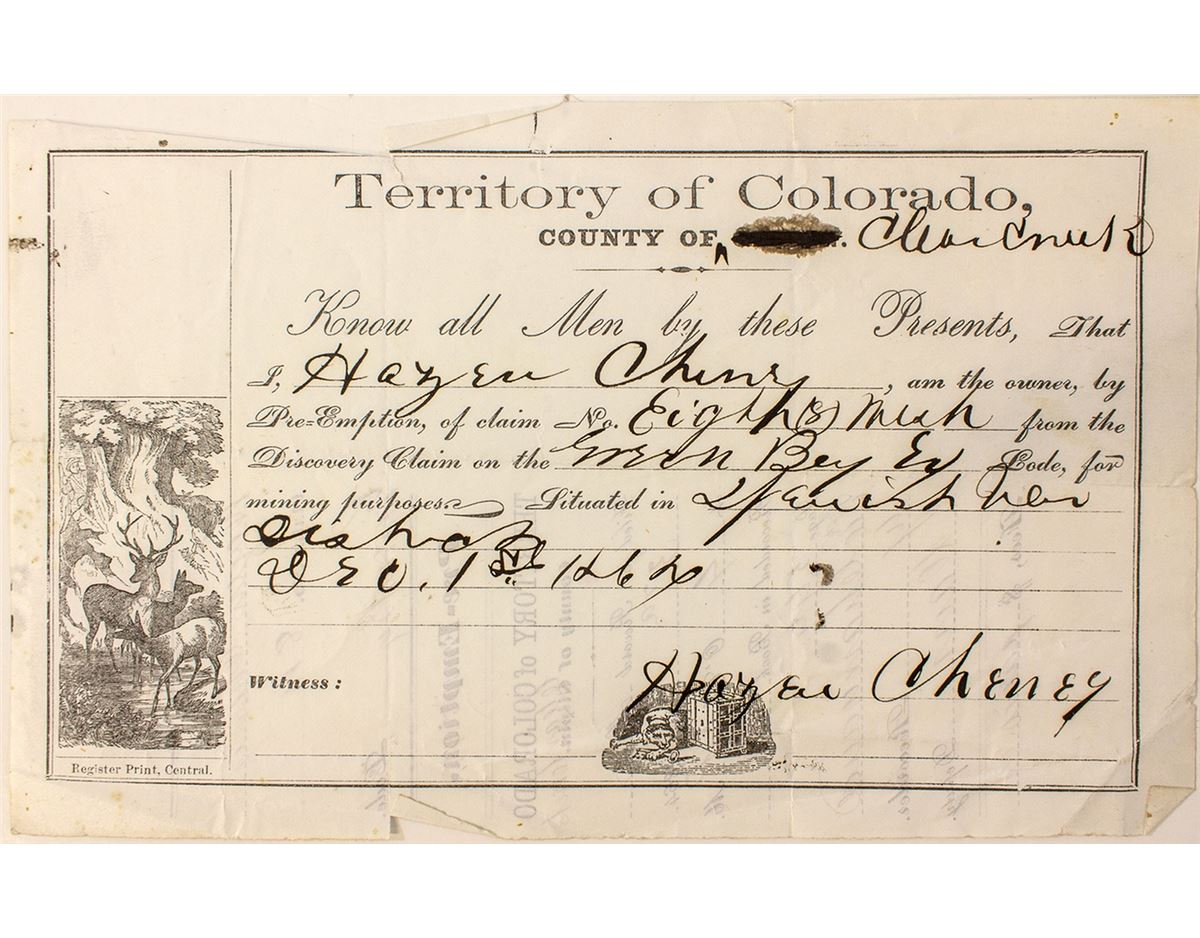 Territory of Colorado,
COUNTY OF Clear Creek
Know all Men by these Presents, That
I, Hazen Cheney, am the owner, by
Pre=Emption, of claim No. Eight (8) West from the
Discovery Claim on the Green Bey Lode, for
mining purposes. Situated in Spanish Bar
District
Dec. 1st 1864
Witness:
Hazen Cheney
Register Print, Central.